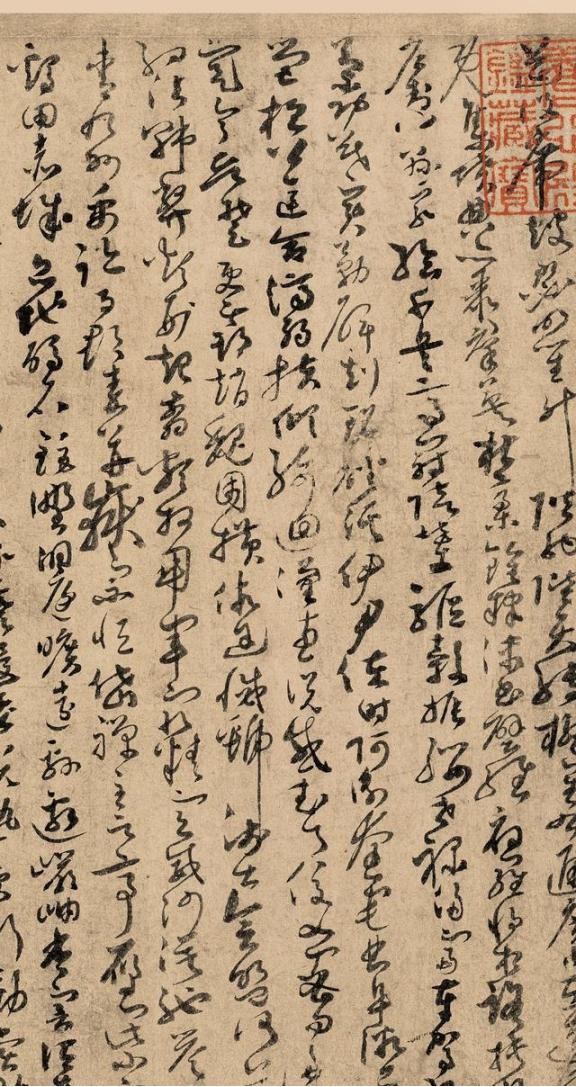 筵設席鼓瑟吹笙升階納陛弁轉疑星右通廣內左達
既集墳典亦聚群英杜稾鍾隸漆書壁經府羅將相路俠
戶封八縣家給千兵高冠陪輦驅轂振纓世祿侈富車駕
策功茂實勒碑刻銘磻溪伊尹佐時阿衡奄宅曲阜微
營桓公匡合濟弱扶傾綺迴漢惠說感武丁俊乂密勿多
寔寧晉楚更霸趙魏困橫假途滅虢踐土會盟何
約法韓弊煩刑起翦頗牧用軍最精宣威沙漠馳譽
青九州禹跡百郡秦并嶽宗恒岱禪主云亭雁門紫
雞田赤城昆池碣石鉅野洞庭曠遠綿邈巖岫杳冥治